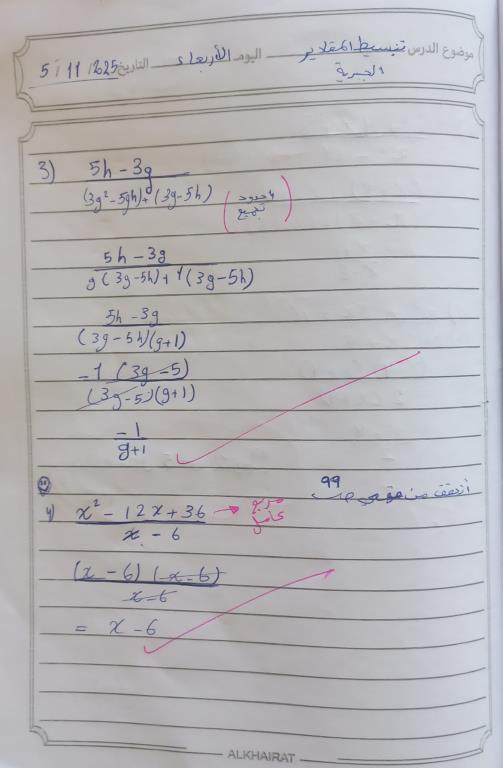 موضوع الدرس تبسيط المقادير الجبرية اليوم الأربعاء التاريخ 5 / 11 / 2025
3) 5h - 3g
(3g² - 5gh) + (3g - 5h) (4 حدود تجميع)
5h - 3g
g(3g - 5h) + 1(3g - 5h)
5h - 3g
(3g - 5h)(g+1)
-1 (3g - 5)
(3g - 5)(g+1)
-1
g+1
أتحقق من فهمي ص 99
4) x² - 12x + 36 → مربع كامل
x - 6
(x - 6) (x - 6)
x - 6
= x - 6
ALKHAIRAT